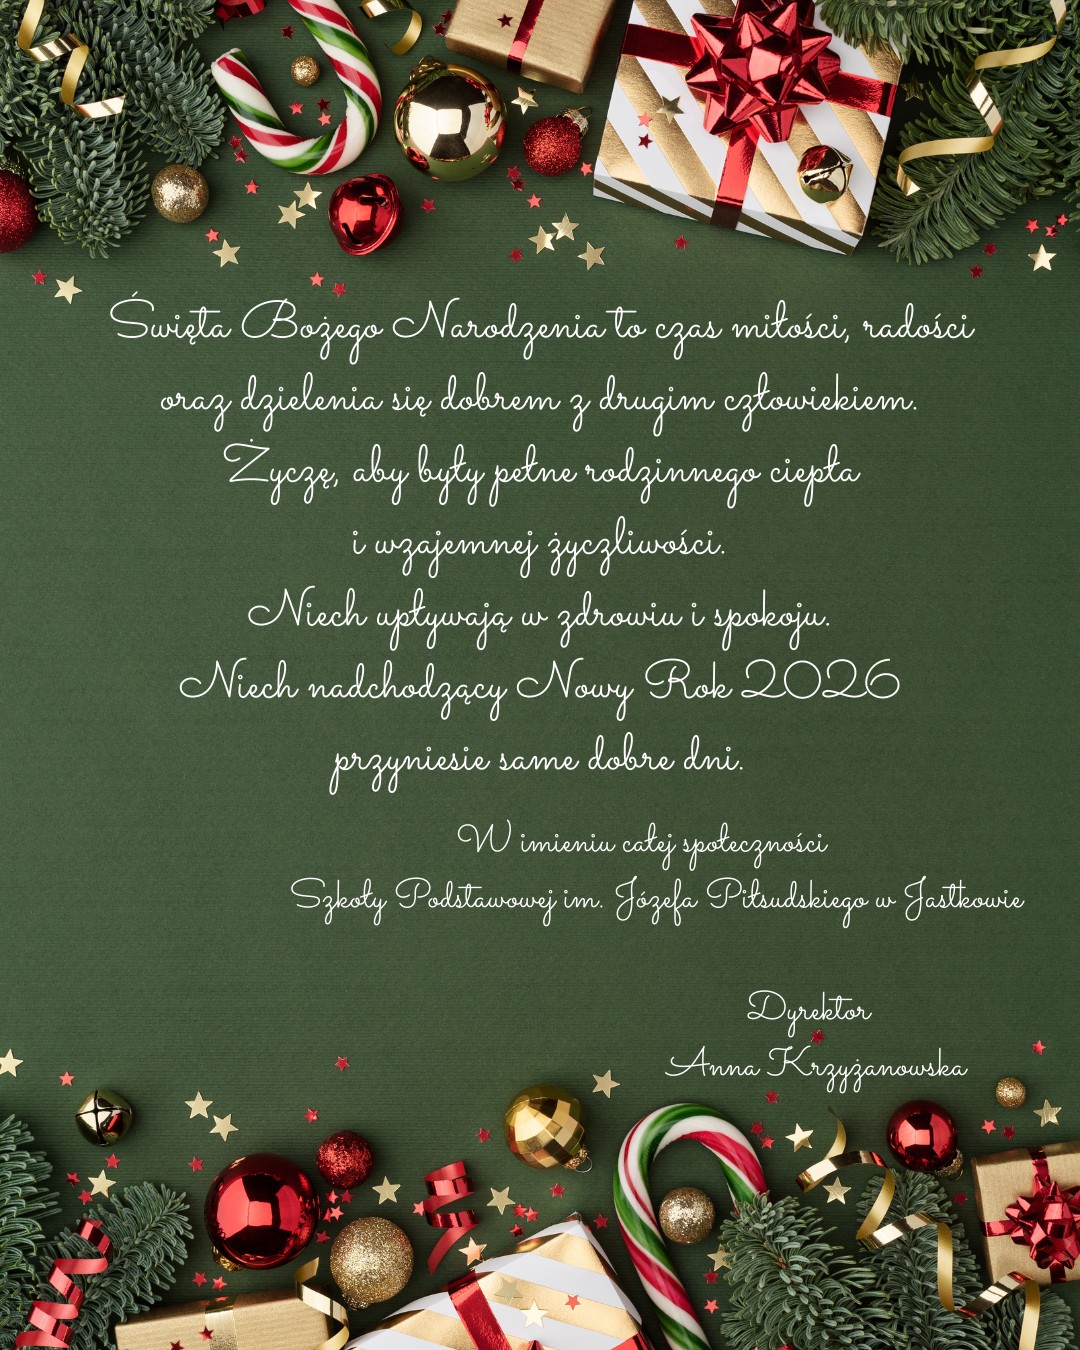 Święta Bożego Narodzenia to czas miłości, radości
oraz dzielenia się dobrem z drugim człowiekiem.
Życzę, aby były pełne rodzinnego ciepła
i wzajemnej życzliwości.
Niech upływają w zdrowiu i spokoju.
Niech nadchodzący Nowy Rok 2026
przyniesie same dobre dni.
W imieniu całej społeczności
Szkoły Podstawowej im. Józefa Piłsudskiego w Jastkowie
Dyrektor
Anna Krzyżanowska